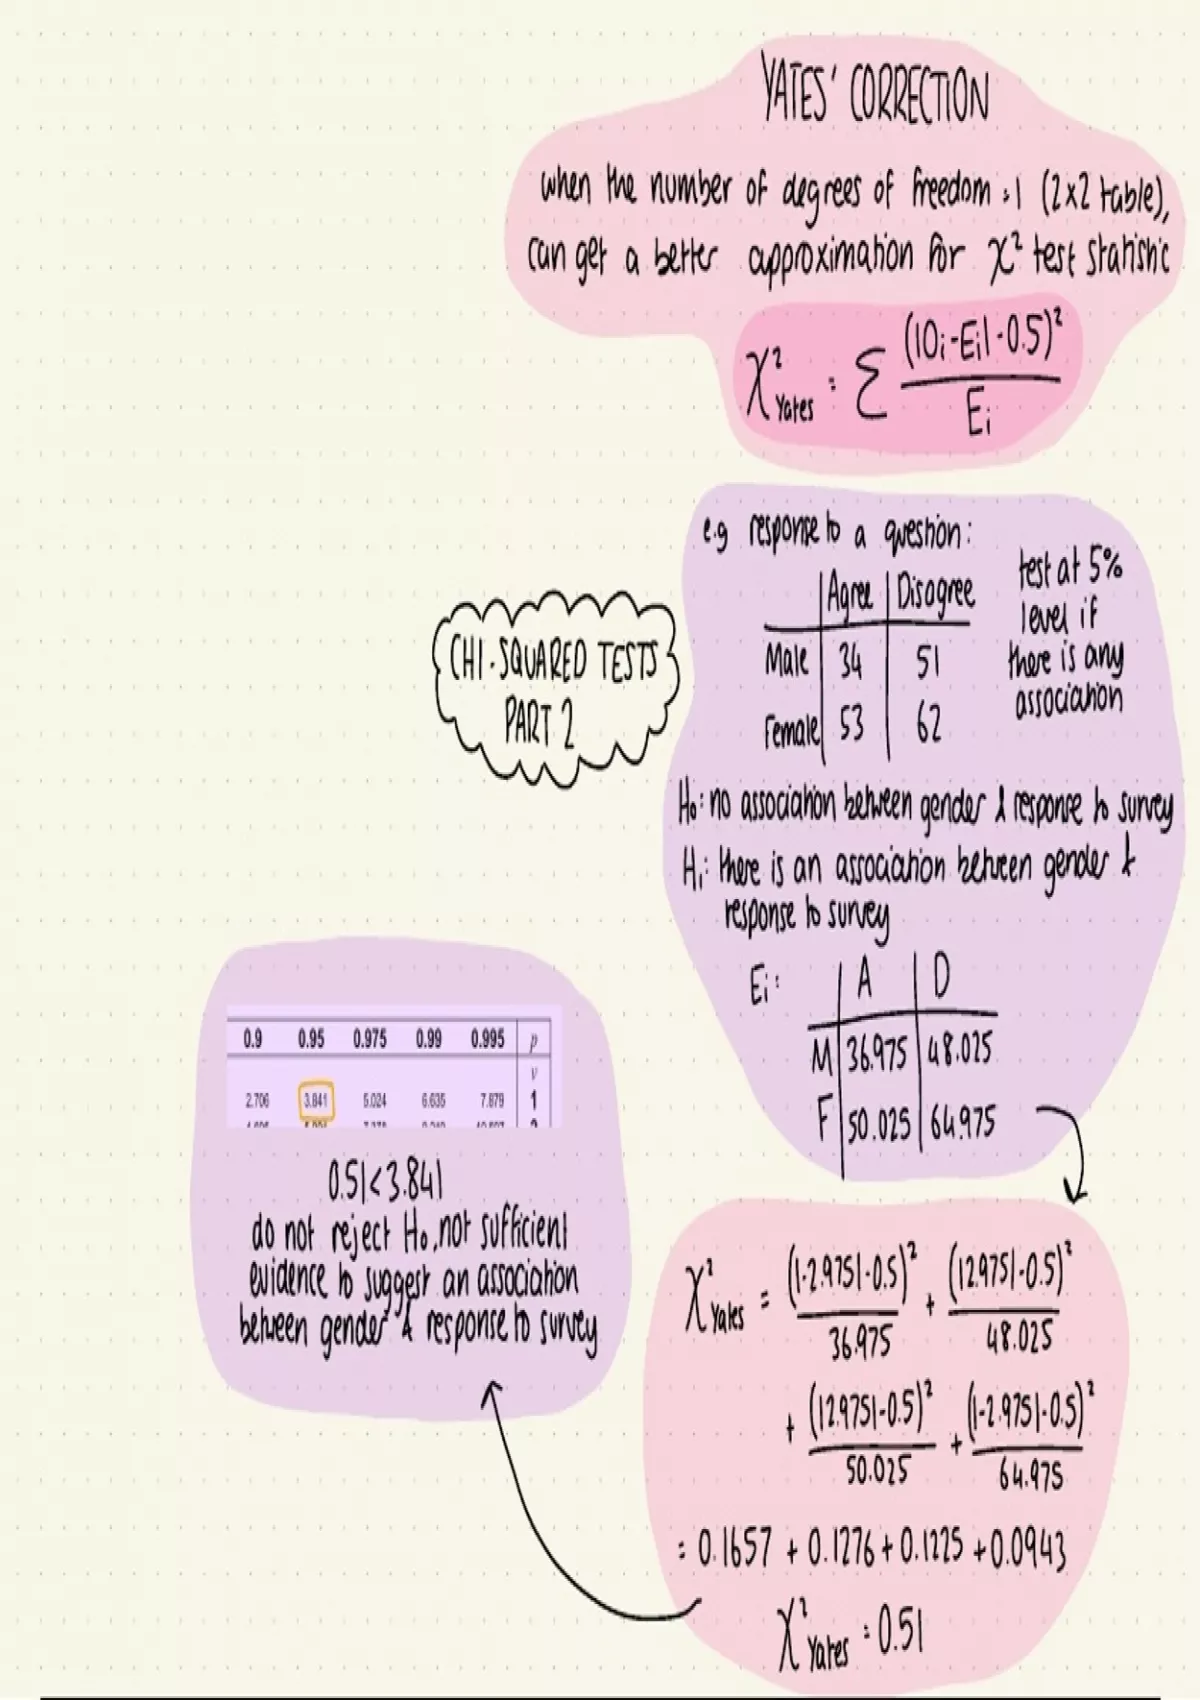 YATES' CORRECTION
when the number of degrees of freedom = 1 (2x2 table),
can get a better approximation for χ² test statistic
χ²Yates = Σ (|Oi-Ei|-0.5)² / Ei
CHI-SQUARED TESTS
PART 2
e.g response to a question:
Agree | Disagree
Male | 34 | 51
Female | 53 | 62
test at 5%
level if
there is any
association
H₀: no association between gender & response to survey
H₁: there is an association between gender &
response to survey
Ei: A | D
M | 36.975 | 48.025
F | 50.025 | 64.975
χ²Yates = (|-2.975|-0.5)² / 36.975 + (|2.975|-0.5)² / 48.025
+ (|2.975|-0.5)² / 50.025 + (|-2.975|-0.5)² / 64.975
= 0.1657 + 0.1276 + 0.1225 + 0.0943
χ²Yates = 0.51
0.9 0.95 0.975 0.99 0.995 p
v
2.706 3.841 5.024 6.635 7.879 1
0.51 < 3.841
do not reject H₀, not sufficient
evidence to suggest an association
between gender & response to survey